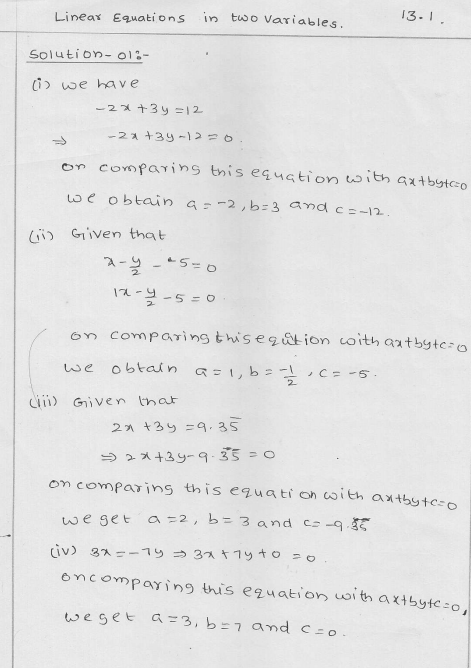 Linear Equations in two Variables. 13.1.
Solution-01:-
(i) we have
-2x+3y=12
⇒ -2x+3y-12=0.
on comparing this equation with ax+by+c=0
we obtain a=-2, b=3 and c=-12.
(ii) Given that
x-y/2-5=0
1x-y/2-5=0.
on comparing this equation with ax+by+c=0
we obtain a=1, b=-1/2, c=-5.
(iii) Given that
2x+3y=9.3̅5̅
⇒ 2x+3y-9.3̅5̅=0
on comparing this equation with ax+by+c=0
we get a=2, b=3 and c=-9.3̅5̅
(iv) 3x=-7y ⇒ 3x+7y+0=0.
on comparing this equation with ax+by+c=0,
we get a=3, b=7 and c=0.